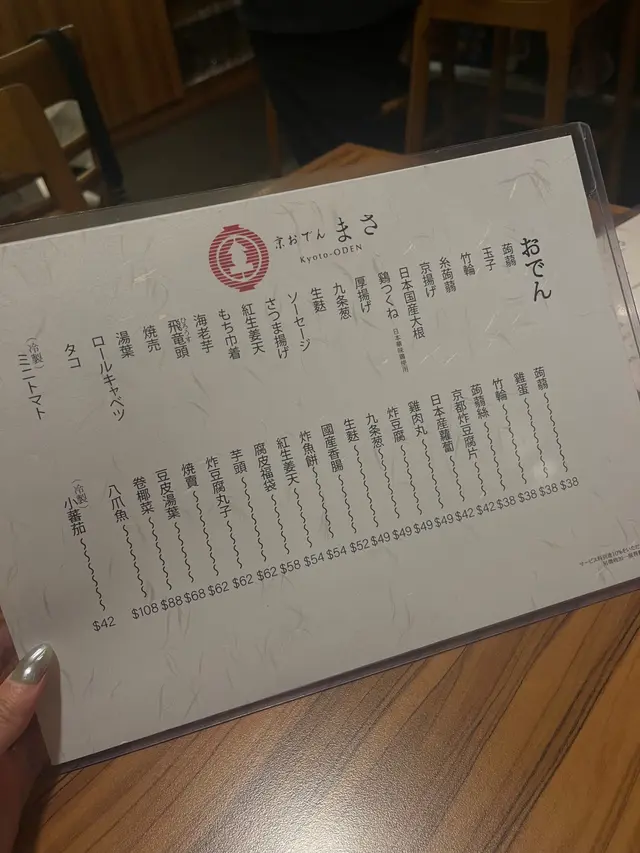 京おでん まさ
Kyoto-ODEN
おでん
蒟蒻
玉子
竹輪
糸蒟蒻
京揚げ
日本国産大根
鶏つくね 日本華味鶏使用
厚揚げ
九条葱
生麩
ソーセージ
さつま揚げ
紅生姜天
もち巾着
海老芋
飛竜頭
ひろうす
焼売
湯葉
ロールキャベツ
タコ
(冷製) ミニトマト
蒟蒻 $38
雞蛋 $38
竹輪 $38
蒟蒻絲 $38
京都炸豆腐片 $42
日本産蘿蔔 $42
雞肉丸 $49
炸豆腐 $49
九条葱 $49
生麩 $49
國産香腸 $52
炸魚餅 $54
紅生姜天 $54
腐皮福袋 $58
芋頭 $62
炸豆腐丸子 $62
燒賣 $62
豆皮湯葉 $68
卷椰菜 $88
八爪魚 $108
(冷製) 小蕃茄 $42